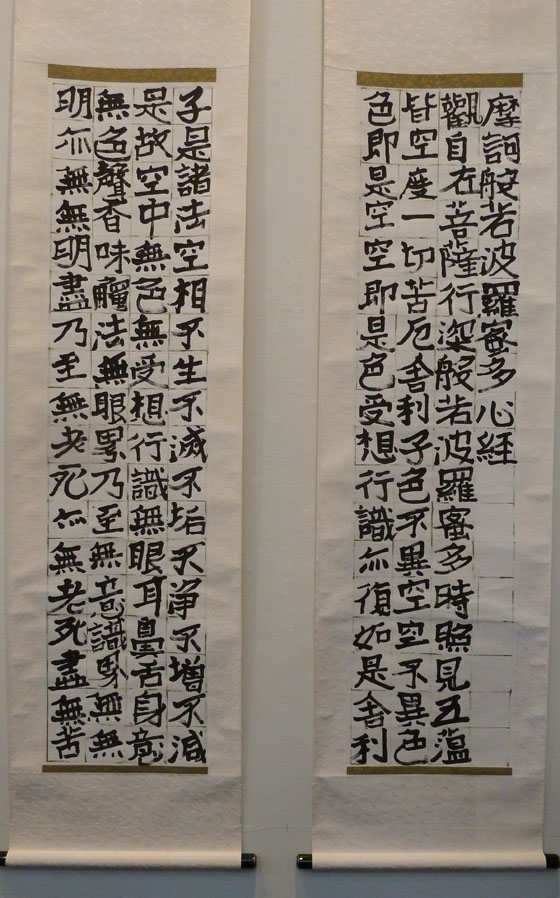 摩訶般若波羅蜜多心經
觀自在菩薩行深般若波羅蜜多時照見五蘊
皆空度一切苦厄舎利子色不異空空不異色
色即是空空即是色受想行識亦復如是舎利
子是諸法空相不生不滅不垢不浄不増不減
是故空中無色無受想行識無眼耳鼻舌身意
無色聲香味觸法無眼界乃至無意識界無無
明亦無無明盡乃至無老死亦無老死盡無苦